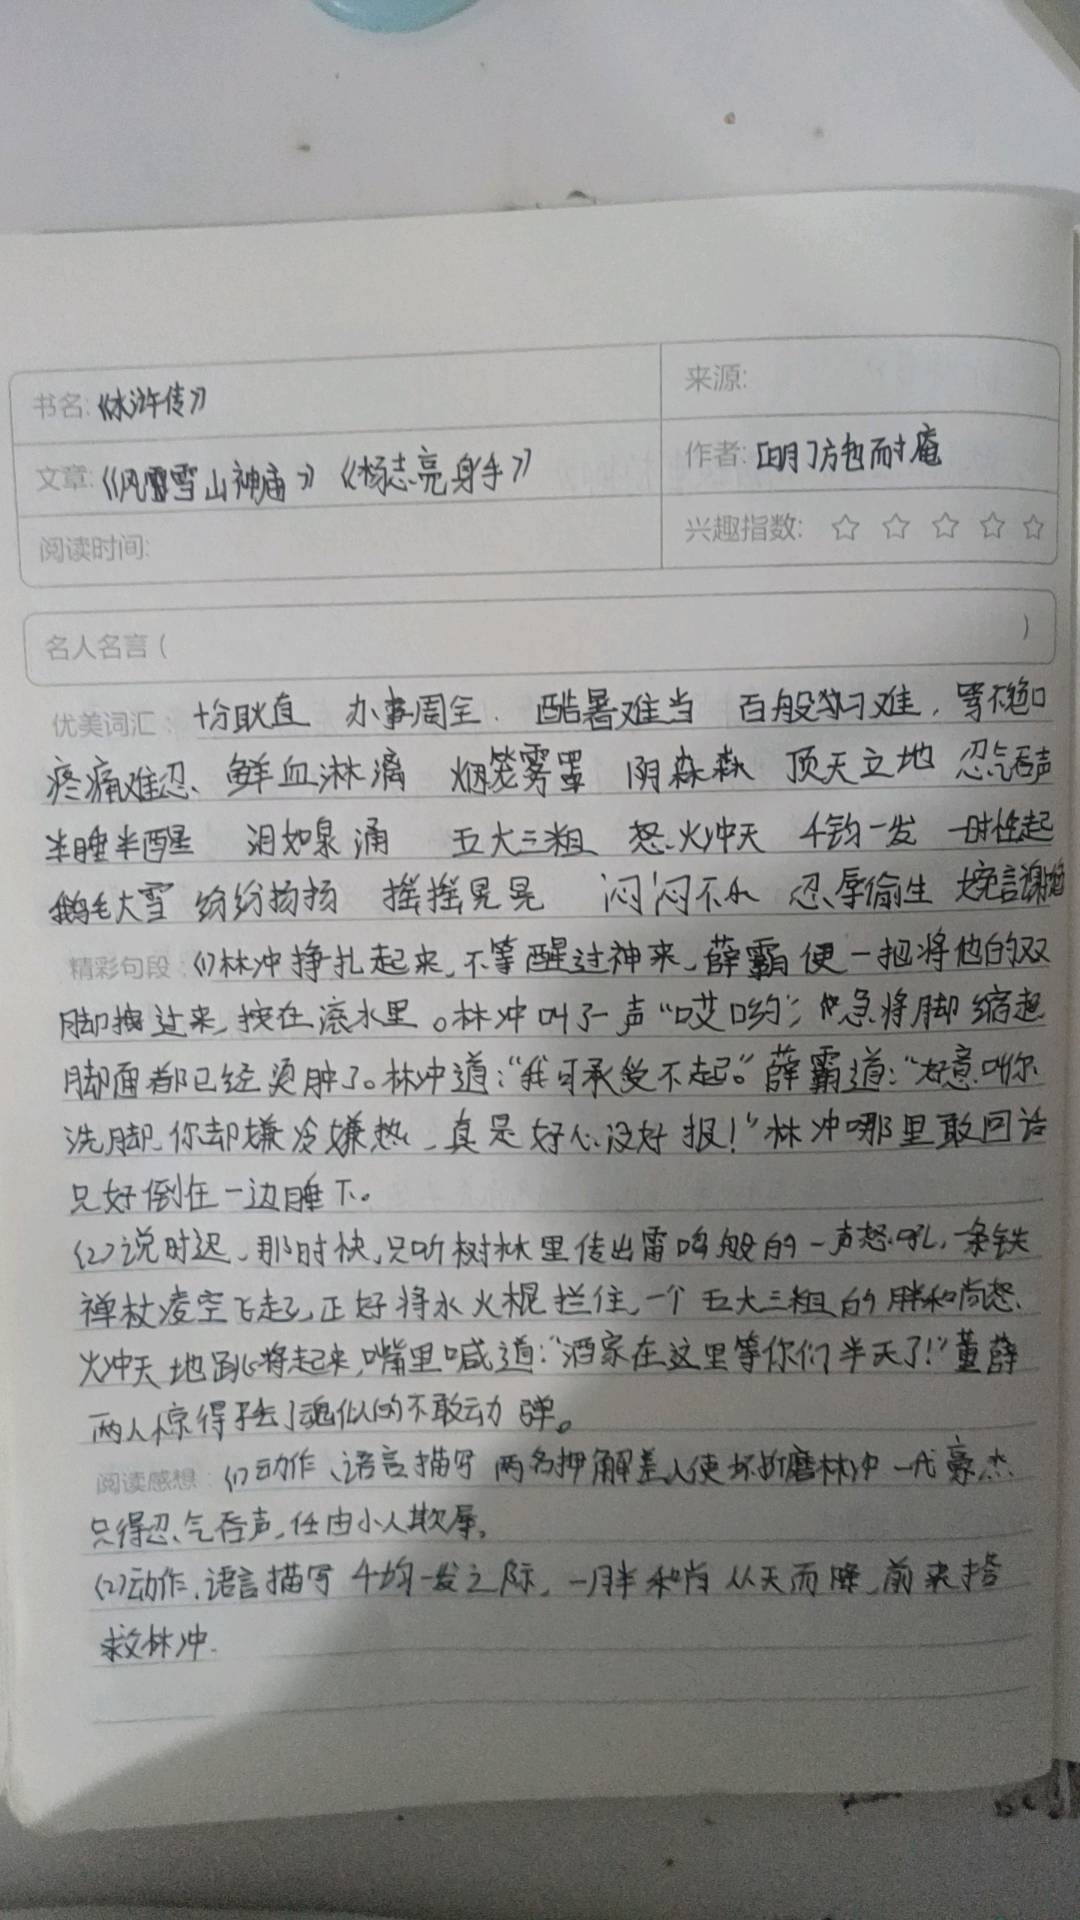 书名:《水浒传》
来源:
文章:《风雪山神庙》《杨志亮身手》
作者:[明]施耐庵
阅读时间:
兴趣指数: ☆ ☆ ☆ ☆ ☆
名人名言( )
优美词汇: 十分耿直 办事周全. 酷暑难当 百般刁难, 骂不绝口
疼痛难忍、 鲜血淋漓 烟笼雾罩 阴森森 顶天立地 忍气吞声
半睡半醒 泪如泉涌 五大三粗 怒火冲天 千钧一发 一时性起
鹅毛大雪 纷纷扬扬 摇摇晃晃 闷闷不 忍辱偷生 婉言谢绝
精彩句段: (1)林冲挣扎起来,不等醒过神来,薛霸便一把将他的双
脚拽过来,按在滚水里。林冲叫了一声“哎哟”,急将脚缩起
脚面都已经烫肿了。林冲道:“我可承受不起。”薛霸道:“好意叫你
洗脚,你却嫌冷嫌热,真是好心没好报!”林冲哪里敢回话
只好倒在一边睡下。
(2)说时迟,那时快,只听树林里传出雷鸣般的一声怒吼,一条铁
禅杖凌空飞起,正好将水火棍拦住,一个五大三粗的胖和尚怒
火冲天地跳将起来,嘴里喊道:“洒家在这里等你们半天了!”董薛
两人惊得丢了魂似的不敢动弹。
阅读感想: (1)动作、语言描写 两名押解差人使坏折磨林冲 一代豪杰
只得忍气吞声,任由小人欺辱。
(2)动作、语言描写 千钧一发之际,一胖和尚从天而降,前来搭
救林冲.